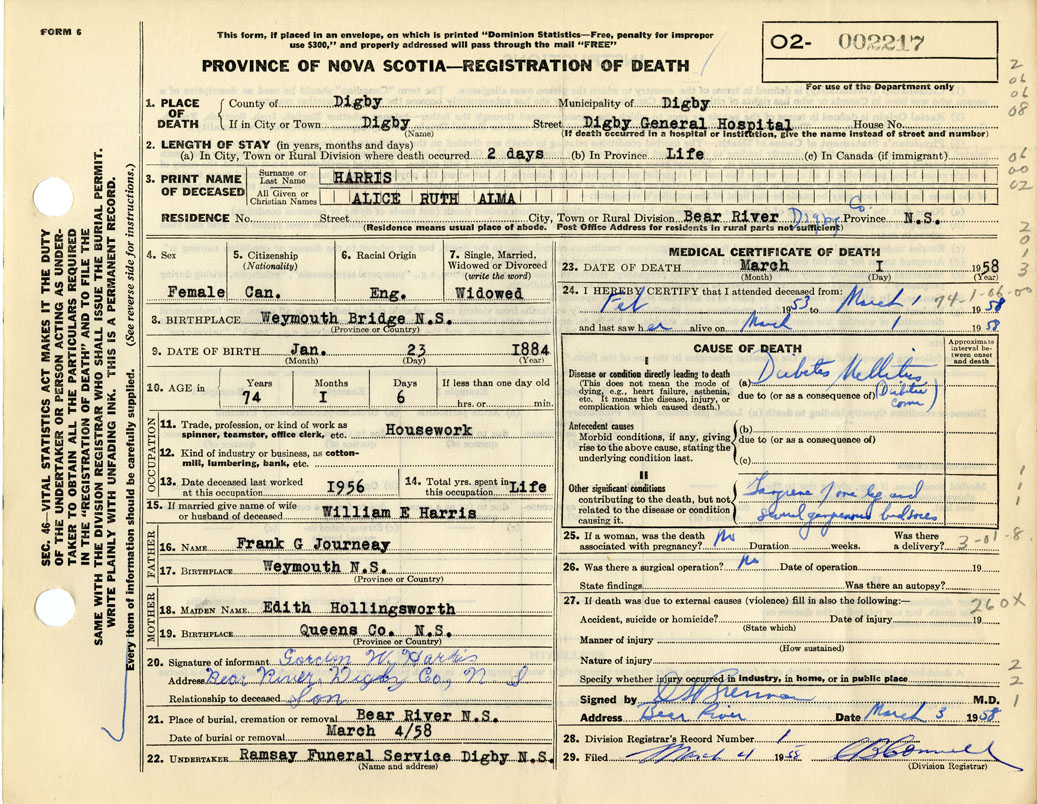 FORM 6
This form, if placed in an envelope, on which is printed "Dominion Statistics—Free, penalty for improper
use $300," and properly addressed will pass through the mail "FREE"
PROVINCE OF NOVA SCOTIA—REGISTRATION OF DEATH
02- 002217
For use of the Department only
SEC. 46—VITAL STATISTICS ACT MAKES IT THE DUTY
OF THE UNDERTAKER OR PERSON ACTING AS UNDER-
TAKER TO OBTAIN ALL THE PARTICULARS REQUIRED
IN THE "REGISTRATION OF DEATH" AND TO FILE THE
SAME WITH THE DIVISION REGISTRAR WHO SHALL ISSUE THE BURIAL PERMIT.
WRITE PLAINLY WITH UNFADING INK. THIS IS A PERMANENT RECORD.
Every item of information should be carefully supplied. (See reverse side for instructions.)
1. PLACE OF DEATH
County of Digby Municipality of Digby
If in City or Town Digby Street Digby General Hospital House No.
(Name) (If death occurred in a hospital or institution, give the name instead of street and number)
2. LENGTH OF STAY (in years, months and days)
(a) In City, Town or Rural Division where death occurred 2 days (b) In Province Life (c) In Canada (if immigrant)
3. PRINT NAME OF DECEASED
Surname or Last Name HARRIS
All Given or Christian Names ALICE RUTH ALMA
RESIDENCE No. Street City, Town or Rural Division Bear River Digby Co. Province N.S.
(Residence means usual place of abode. Post Office Address for residents in rural parts not sufficient)
4. Sex Female
5. Citizenship (Nationality) Can.
6. Racial Origin Eng.
7. Single, Married, Widowed or Divorced (write the word) Widowed
8. BIRTHPLACE Weymouth Bridge N.S.
(Province or Country)
9. DATE OF BIRTH Jan. 23 1884
(Month) (Day) (Year)
10. AGE in Years 74 Months I Days 6 If less than one day old hrs. or min.
OCCUPATION
11. Trade, profession, or kind of work as
spinner, teamster, office clerk, etc. Housework
12. Kind of industry or business, as cotton-
mill, lumbering, bank, etc.
13. Date deceased last worked at this occupation 1956
14. Total yrs. spent in this occupation Life
15. If married give name of wife or husband of deceased William E Harris
FATHER
16. NAME Frank G Journeay
17. BIRTHPLACE Weymouth N.S.
(Province or Country)
MOTHER
18. MAIDEN NAME Edith Hollingsworth
19. BIRTHPLACE Queens Co. N.S.
(Province or Country)
20. Signature of informant Gordon W. Harris
Address Bear River, Digby Co, N. S
Relationship to deceased Son
21. Place of burial, cremation or removal Bear River N.S.
Date of burial or removal March 4/58
22. UNDERTAKER Ramsay Funeral Service Digby N.S.
(Name and address)
MEDICAL CERTIFICATE OF DEATH
23. DATE OF DEATH March I 1958
(Month) (Day) (Year)
24. I HEREBY CERTIFY that I attended deceased from:
Feb 1953 to March 1 1958
and last saw her alive on March 1 1958
74-1-06-00
CAUSE OF DEATH
Approximate interval between onset and death
I
Disease or condition directly leading to death
(This does not mean the mode of
dying, e.g., heart failure, asthenia,
etc. It means the disease, injury, or
complication which caused death.)
(a) Diabetes Mellitus
due to (or as a consequence of) (Diabetic coma)
Antecedent causes
Morbid conditions, if any, giving
rise to the above cause, stating the
underlying condition last.
(b)
due to (or as a consequence of)
(c)
II
Other significant conditions
contributing to the death, but not
related to the disease or condition
causing it.
Gangrene of one leg and
several gangrenous bedsores
25. If a woman, was the death associated with pregnancy? No Duration weeks. Was there a delivery?
3-01-8.
26. Was there a surgical operation? No Date of operation 19
State findings Was there an autopsy?
27. If death was due to external causes (violence) fill in also the following:—
260X
Accident, suicide or homicide? Date of injury 19
(State which)
Manner of injury
(How sustained)
Nature of injury
Specify whether injury occurred in industry, in home, or in public place
Signed by M.D.
Address Bear River Date March 3 1958
28. Division Registrar's Record Number 1
29. Filed March 4 1958
(Division Registrar)
2
06
06
08
06
00
02
2
0
1
3
1
1
1
2
2
1